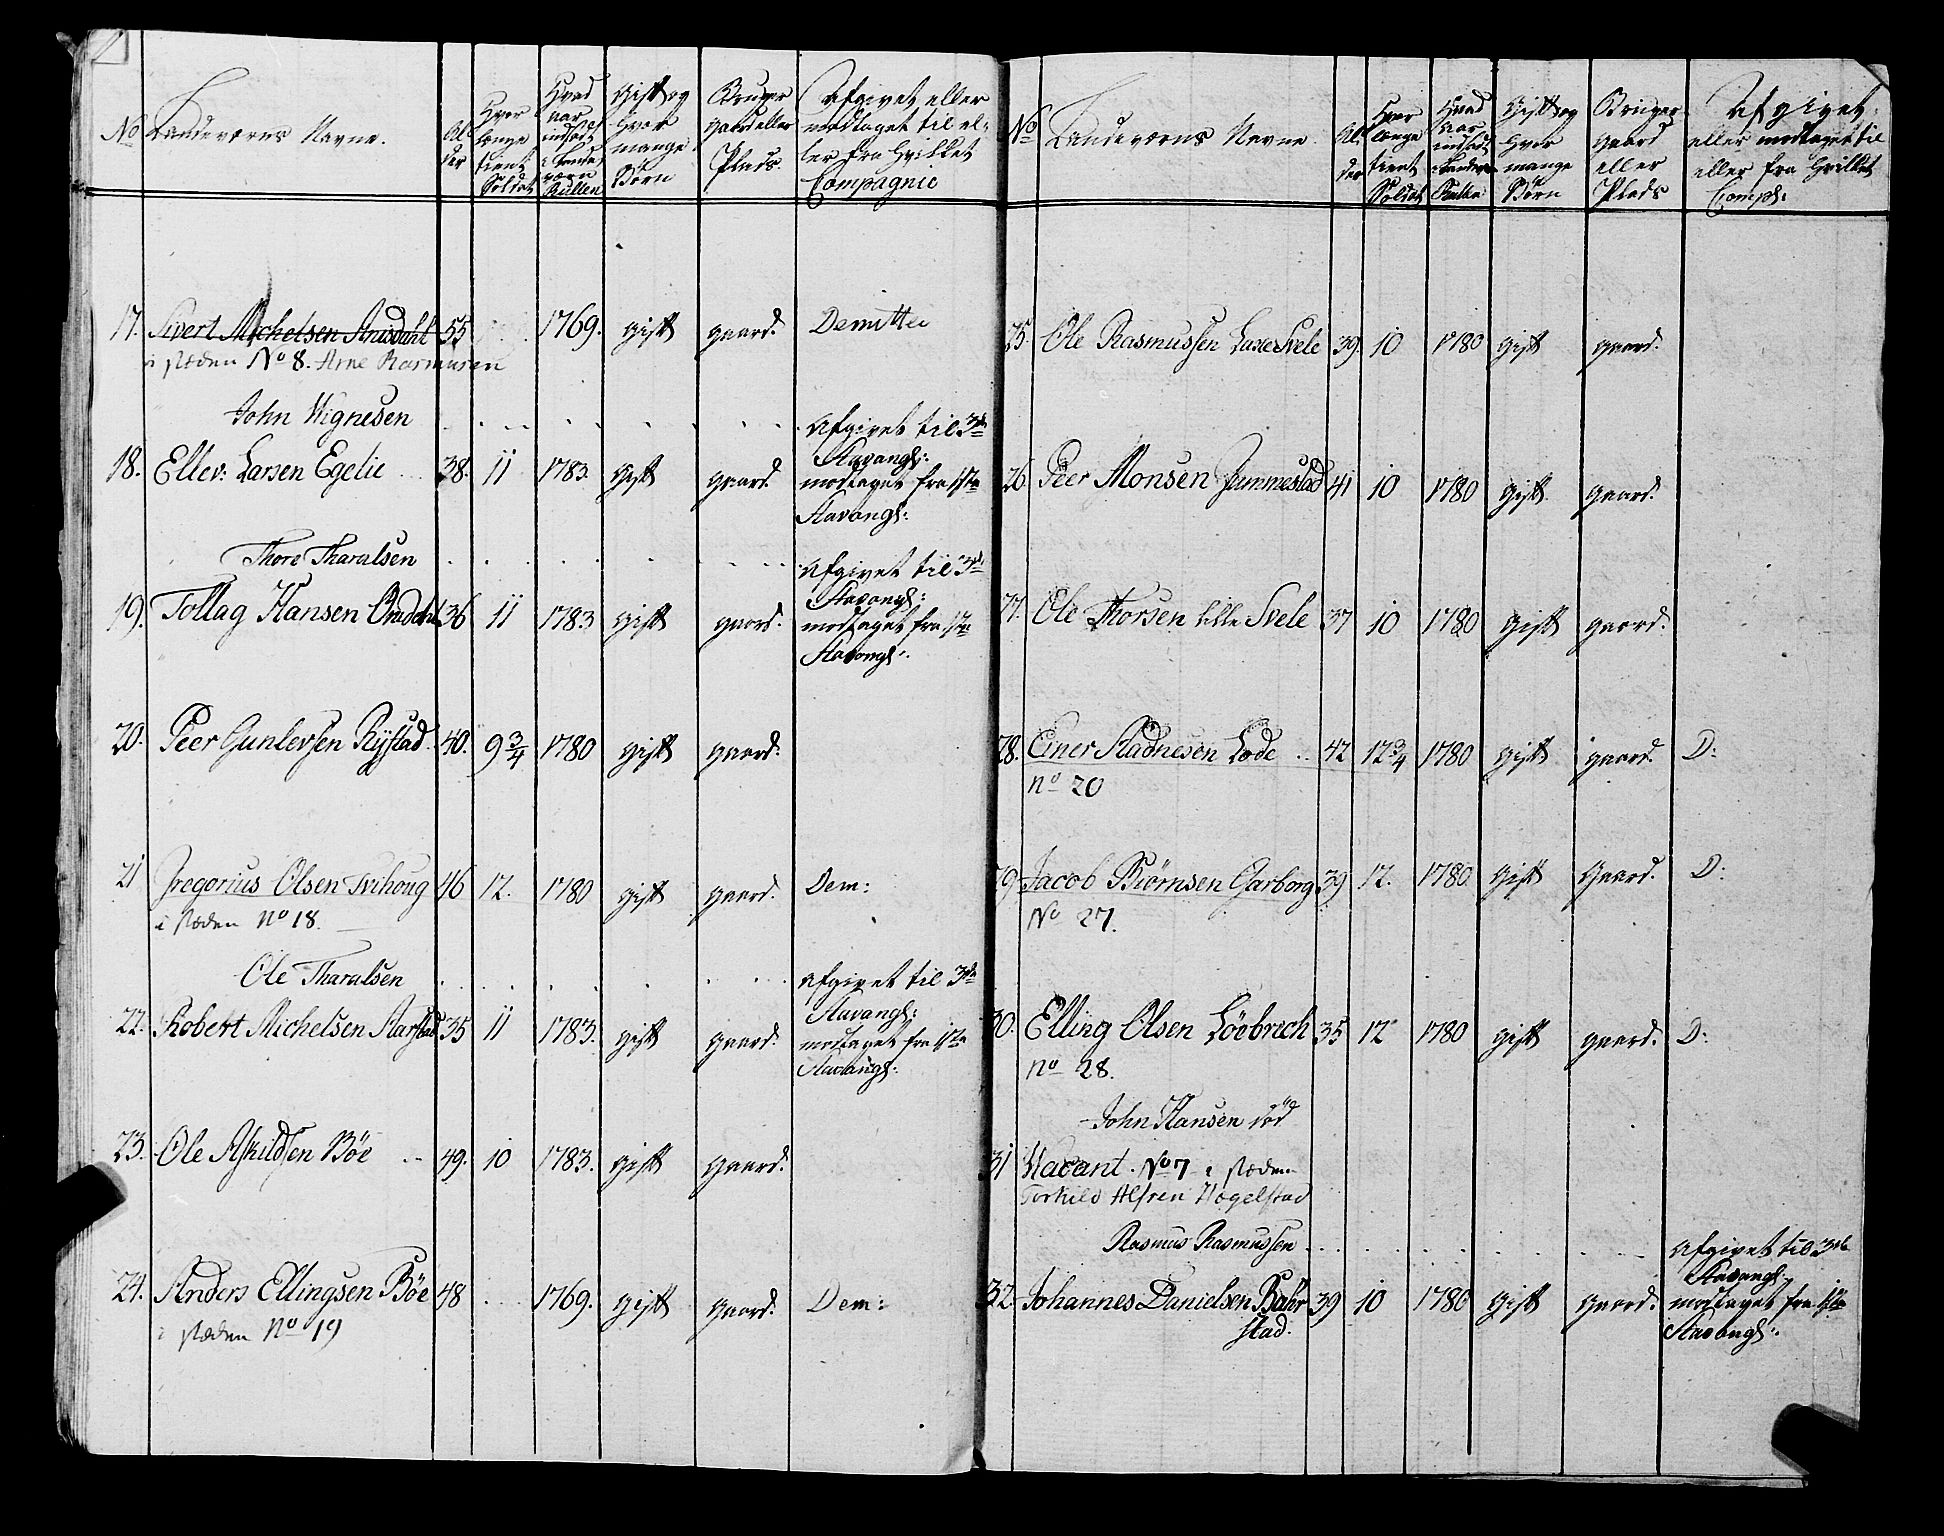 No Landeværns Navne. Al der Hvor længe tient Soldat Hvad var indsadt i Landeværn Rullen Gift og hvor mange Børn Bruger gaard eller Plads. Afgivet eller modtaget til eller fra hvilket Compagnie
17. Sivert Michelsen 55 1769. gift gaard. Demitter
i stæden No 8. Arne Rasmusen
John Wignesen . . . . . . Afgivet til 3de Stavangs:
18. Ellev: Larsen Egelie 38. 11 1783. gift gaard modtaget fra 1ste Stavangs:
Thore Tharalsen . . . . . . Afgivet til 3de Stavangs:
19. Tollag Hansen 36 11 1783 gift gaard. modtaget fra 1ste Stavangs:
20. Peer Gunlevsen Rystad. 40. 9 3/4 1780 gift gaard.
21 Gregorius Olsen Tvihoug 46 12. 1780 gift gaard. Dem:
i stæden No 18.
Ole Tharalsen . . . . . . Afgivet til 3de Stavangs:
22. Robert Michelsen Aarstad 35 11 1783. gift gaard. modtaget fra 1ste Stavangs:
23. Ole Askildsen Böe 49. 10 1783. gift gaard.
24. Anders Ellingsen Böe 48 1769. gift gaard. Dem:
i stæden No 19
No Landeværns Navne. Al der Hvor længe tient Soldat Hvad var indsadt i Landeværn Rullen Gift og hvor mange Børn Bruger gaard eller Plads Afgivet eller modtaget til eller fra hvilket Comps:
25. Ole Rasmussen Svele 39. 10 1780 gift gaard.
26. Peer Monsen Jummestad 41 10 1780 gift gaard.
27. Ole Thorsen lille Svele 37 10 1780 gift gaard.
28. Einer Stadnesen Lode 42 12 3/4 1780 gift gaard. D:
no 20
29. Jacob Biörnsen Garborg 39 12. 1780. gift Gaard. D:
No 27.
30. Elling Olsen Löebrech 35 12 1780 gift gaard. D:
no 28.
John Hansen död
31 Vacant. No 7 i stæden
Torkild Alfsen Hægelstad
Rasmus Rasmussen . . . . . . Afgivet til 3de Stavangs:
32. Johannes Danielsen 39 10 1780 gift gaard. modtaget fra 1ste Stavangs:
stad.